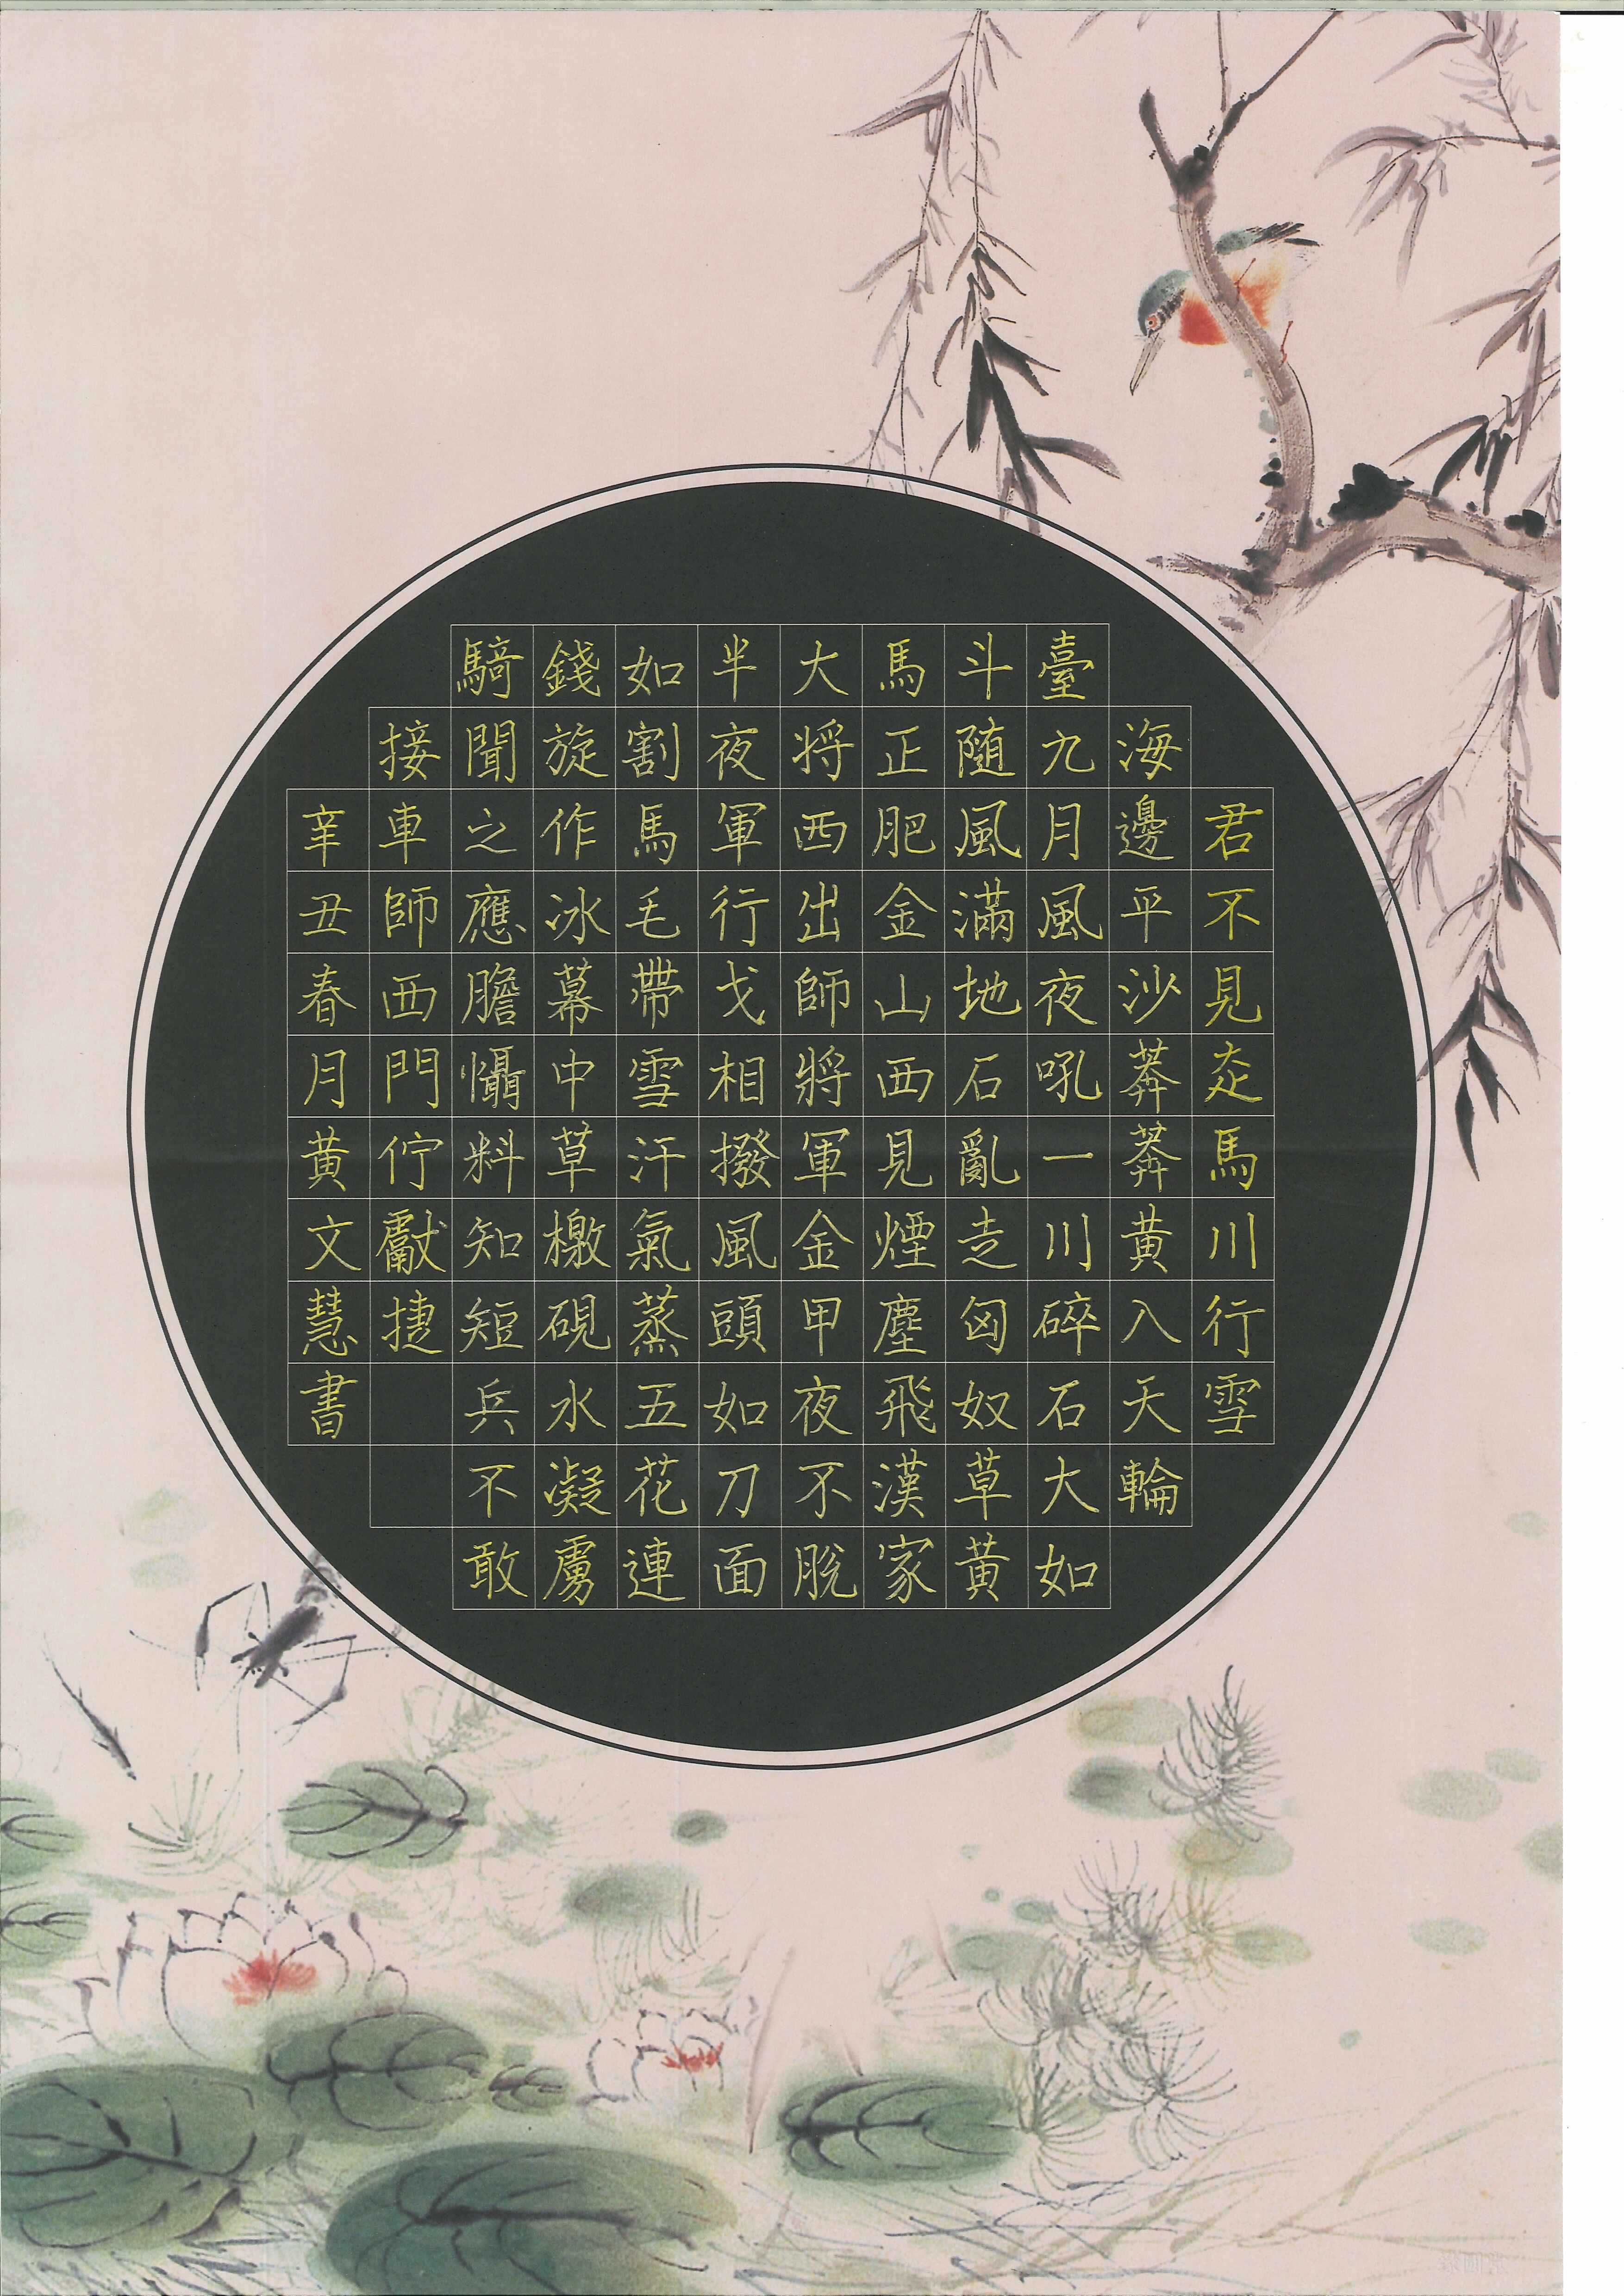 君不見赱馬川行雪
海邊平沙莽莽黃入天輪
臺九月風夜吼一川碎石大如
斗随風滿地石亂走匈奴草黃
馬正肥金山西見煙塵飛漢家
大将西出師將軍金甲夜不脫
半夜軍行戈相撥風頭如刀面
如割馬毛帶雪汗氣蒸五花連
錢旋作冰幕中草檄硯水凝虜
騎聞之應膽懾料知短兵不敢
接車師西門佇獻捷
辛丑春月黃文慧書